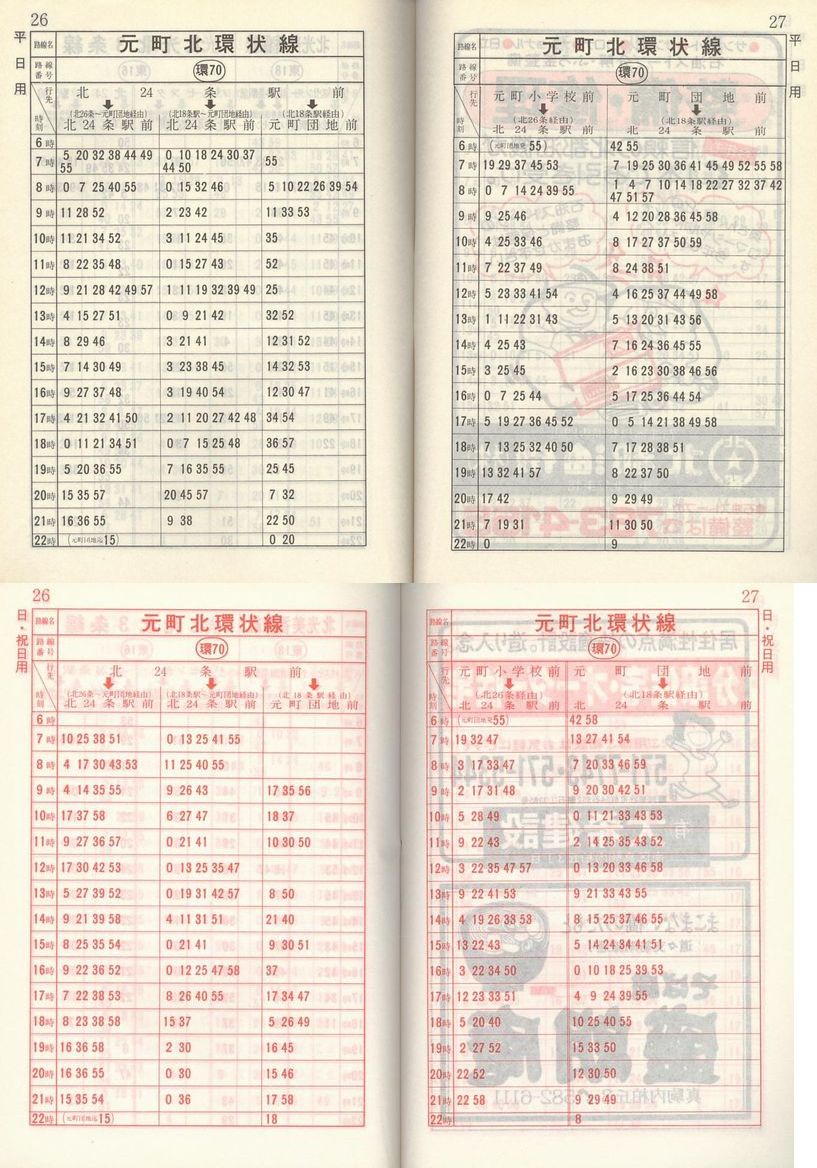 26
平日用
路線名 元町北環状線
路線番号 環70
行先 北 24 条 駅 前
(北26条~元町団地経由) (北18条駅~元町団地経由) (北18条駅経由)
時刻 北 24 条 駅 前 北 24 条 駅 前 元 町 団 地 前
6時
7時 5 20 32 38 44 49 55 0 10 18 24 30 37 44 50 55
8時 0 7 25 40 55 0 15 32 46 5 10 22 26 39 54
9時 11 28 52 2 23 42 11 33 53
10時 11 21 34 52 3 11 24 45 35
11時 8 22 35 48 0 15 27 43 52
12時 9 21 28 42 49 57 1 11 19 32 39 49 25
13時 4 15 27 51 0 9 21 42 32 52
14時 8 29 46 3 21 41 12 31 52
15時 7 14 30 49 3 23 38 45 14 32 53
16時 9 27 37 48 3 19 40 54 12 30 47
17時 4 21 32 41 50 2 11 20 27 42 48 34 54
18時 0 11 21 34 51 0 7 15 25 48 36 57
19時 5 20 36 55 7 16 35 55 25 45
20時 15 35 57 20 45 57 7 32
21時 16 36 55 9 38 22 50
22時 (元町団地迄15) 0 20
27
平日用
路線名 元町北環状線
路線番号 環70
行先 元町小学校前 元 町 団 地 前
(北26条経由) (北18条駅経由)
時刻 北 24 条 駅 前 北 24 条 駅 前
6時 (元町団地発55) 42 55
7時 19 29 37 45 53 7 19 25 30 36 41 45 49 52 55 58
8時 0 7 14 24 39 55 1 4 7 10 14 18 22 27 32 37 42 47 51 57
9時 9 25 46 4 12 20 28 36 45 58
10時 4 25 33 46 8 17 27 37 50 59
11時 7 22 37 49 8 24 38 51
12時 5 23 33 41 54 4 16 25 37 44 49 58
13時 1 11 22 31 43 5 13 20 31 43 56
14時 4 25 43 7 16 24 36 45 55
15時 3 25 45 2 16 23 30 38 46 56
16時 0 7 25 44 5 17 25 36 44 54
17時 5 19 27 36 45 52 0 5 14 21 38 49 58
18時 7 13 25 32 40 50 7 17 28 38 51
19時 13 32 41 57 8 22 37 50
20時 17 42 9 29 49
21時 7 19 31 11 30 50
22時 0 9
26
日・祝日用
路線名 元町北環状線
路線番号 環70
行先 北 24 条 駅 前
(北26条~元町団地経由) (北18条駅~元町団地経由) (北18条駅経由)
時刻 北 24 条 駅 前 北 24 条 駅 前 元 町 団 地 前
6時
7時 10 25 38 51 0 13 25 41 55
8時 4 17 30 43 53 11 25 40 55
9時 4 14 35 55 9 26 43 17 35 56
10時 17 37 58 6 27 47 18 37
11時 9 27 36 57 0 21 41 10 30 50
12時 17 30 42 53 0 13 25 35 47
13時 5 27 39 52 0 19 31 42 57 8 50
14時 9 21 39 58 4 11 31 51 21 40
15時 8 25 35 54 0 21 41 9 30 51
16時 9 22 36 52 0 12 25 47 58 37
17時 7 22 38 53 8 26 40 55 17 34 47
18時 8 23 38 58 15 37 5 26 49
19時 16 36 58 2 30 16 45
20時 16 36 55 0 30 15 46
21時 15 35 54 0 36 17 58
22時 (元町団地迄15) 18
27
日・祝日用
路線名 元町北環状線
路線番号 環70
行先 元町小学校前 元 町 団 地 前
(北26条経由) (北18条駅経由)
時刻 北 24 条 駅 前 北 24 条 駅 前
6時 (元町団地発55) 42 58
7時 19 32 47 13 27 41 54
8時 3 17 33 47 7 20 33 46 59
9時 2 17 31 48 9 20 30 42 51
10時 5 28 49 0 11 21 33 43 53
11時 9 22 43 2 14 25 35 43 52
12時 3 22 35 47 57 0 13 20 33 46 58
13時 9 22 41 53 9 21 33 43 55
14時 4 19 26 38 53 8 15 25 37 46 55
15時 13 22 43 5 14 24 34 41 51
16時 3 22 34 50 0 10 18 25 39 53
17時 12 23 33 51 4 9 24 39 55
18時 5 20 40 10 25 40 55
19時 2 27 52 15 33 50
20時 22 52 12 30 50
21時 22 58 9 29 49
22時 8